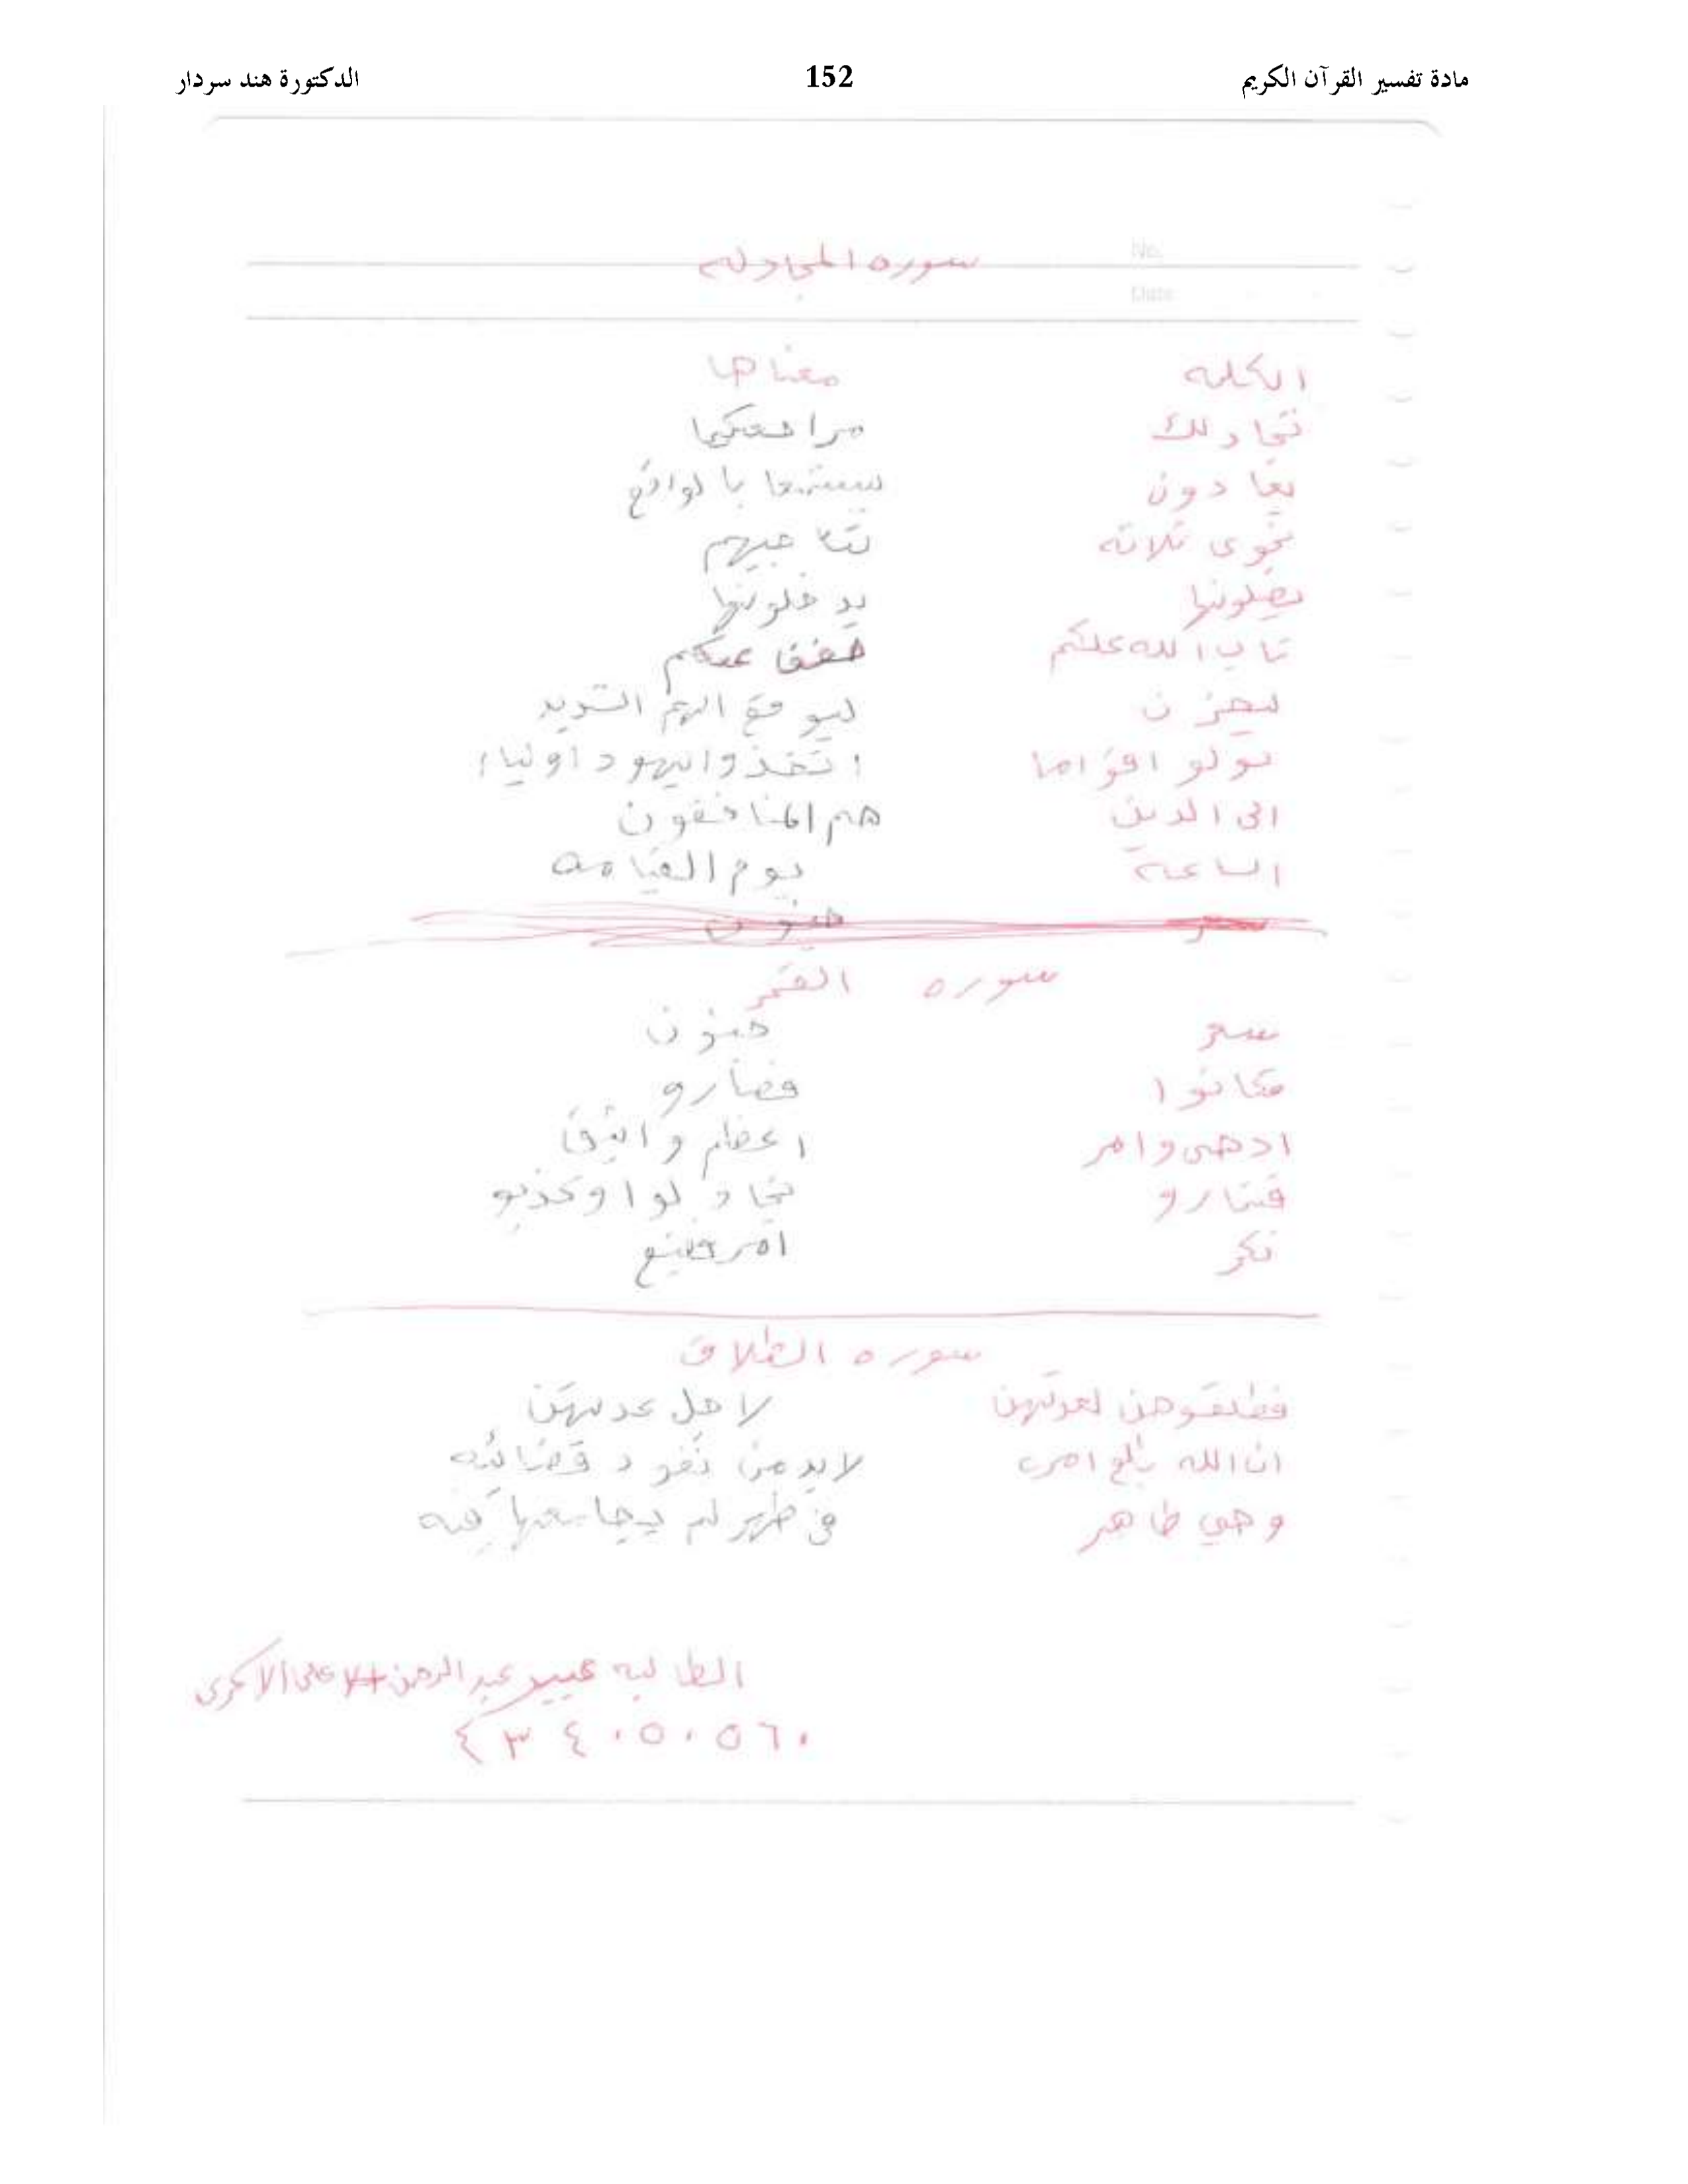 مادة تفسير القرآن الكريم 152 الدكتورة هند سردار
سوره المجادله
No.
Date
الكلمه معناها
تجادلك مراجعتكما
يحادون
نجوى ثلاثه تناجيهم
يصلونها يدخلونها
تاب الله عليكم خفف عنكم
ليحزن ليوقع الهم الشديد
تولو اقواما اتخذوا اليهود اولياء
الى الذين هم المنافقون
الساعة يوم القيامه
سوره القمر
سعر جنون
فكانوا فصارو
ادهى وامر اعظم
فتمارو تجادلوا وكذبو
نكر امر فضيع
سوره الطلاق
فطلقوهن لعدتهن لاجل عدتهن
ان الله بالغ امره لابد من نفود قضائه
وهي طاهر في طهر لم يجامعها فيه
الطالبه عبير عبد الرحمن
٤٣٤٠٥٠٥٦٠